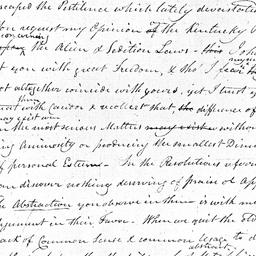 scaped the Pestilence which lately devastated
You request my Opinion of the Kentucky
the Alien & Sedition Laws - this I
you with great Freedom, & tho' I fear
not altogether coincide with yours, yet I trust
with Candor & recollect that, the difference of
may exist even
in the most serious Matters may exist without
ing Animosity or producing the smallest Dimi
of personal Esteem. - In the Resolutions aforesd
can discover nothing deserving of praise or Ap
The Abstraction you observe in them is with me
Argument in their Favor. When we quit the
of Common Sense & common Usage to
abstract